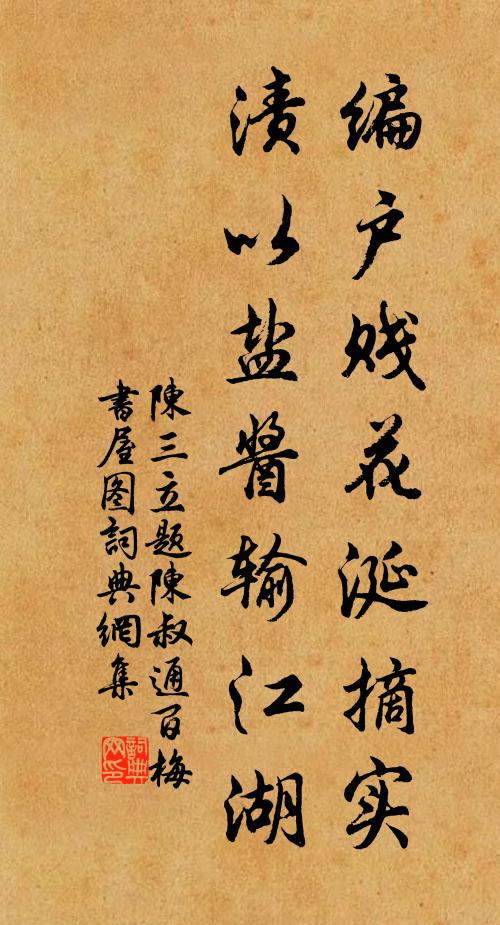 编户贱花涎摘实
渍以盐醬输江湖
陳三立题陳叔通百梅
書屋图詞典網集
詞典网印